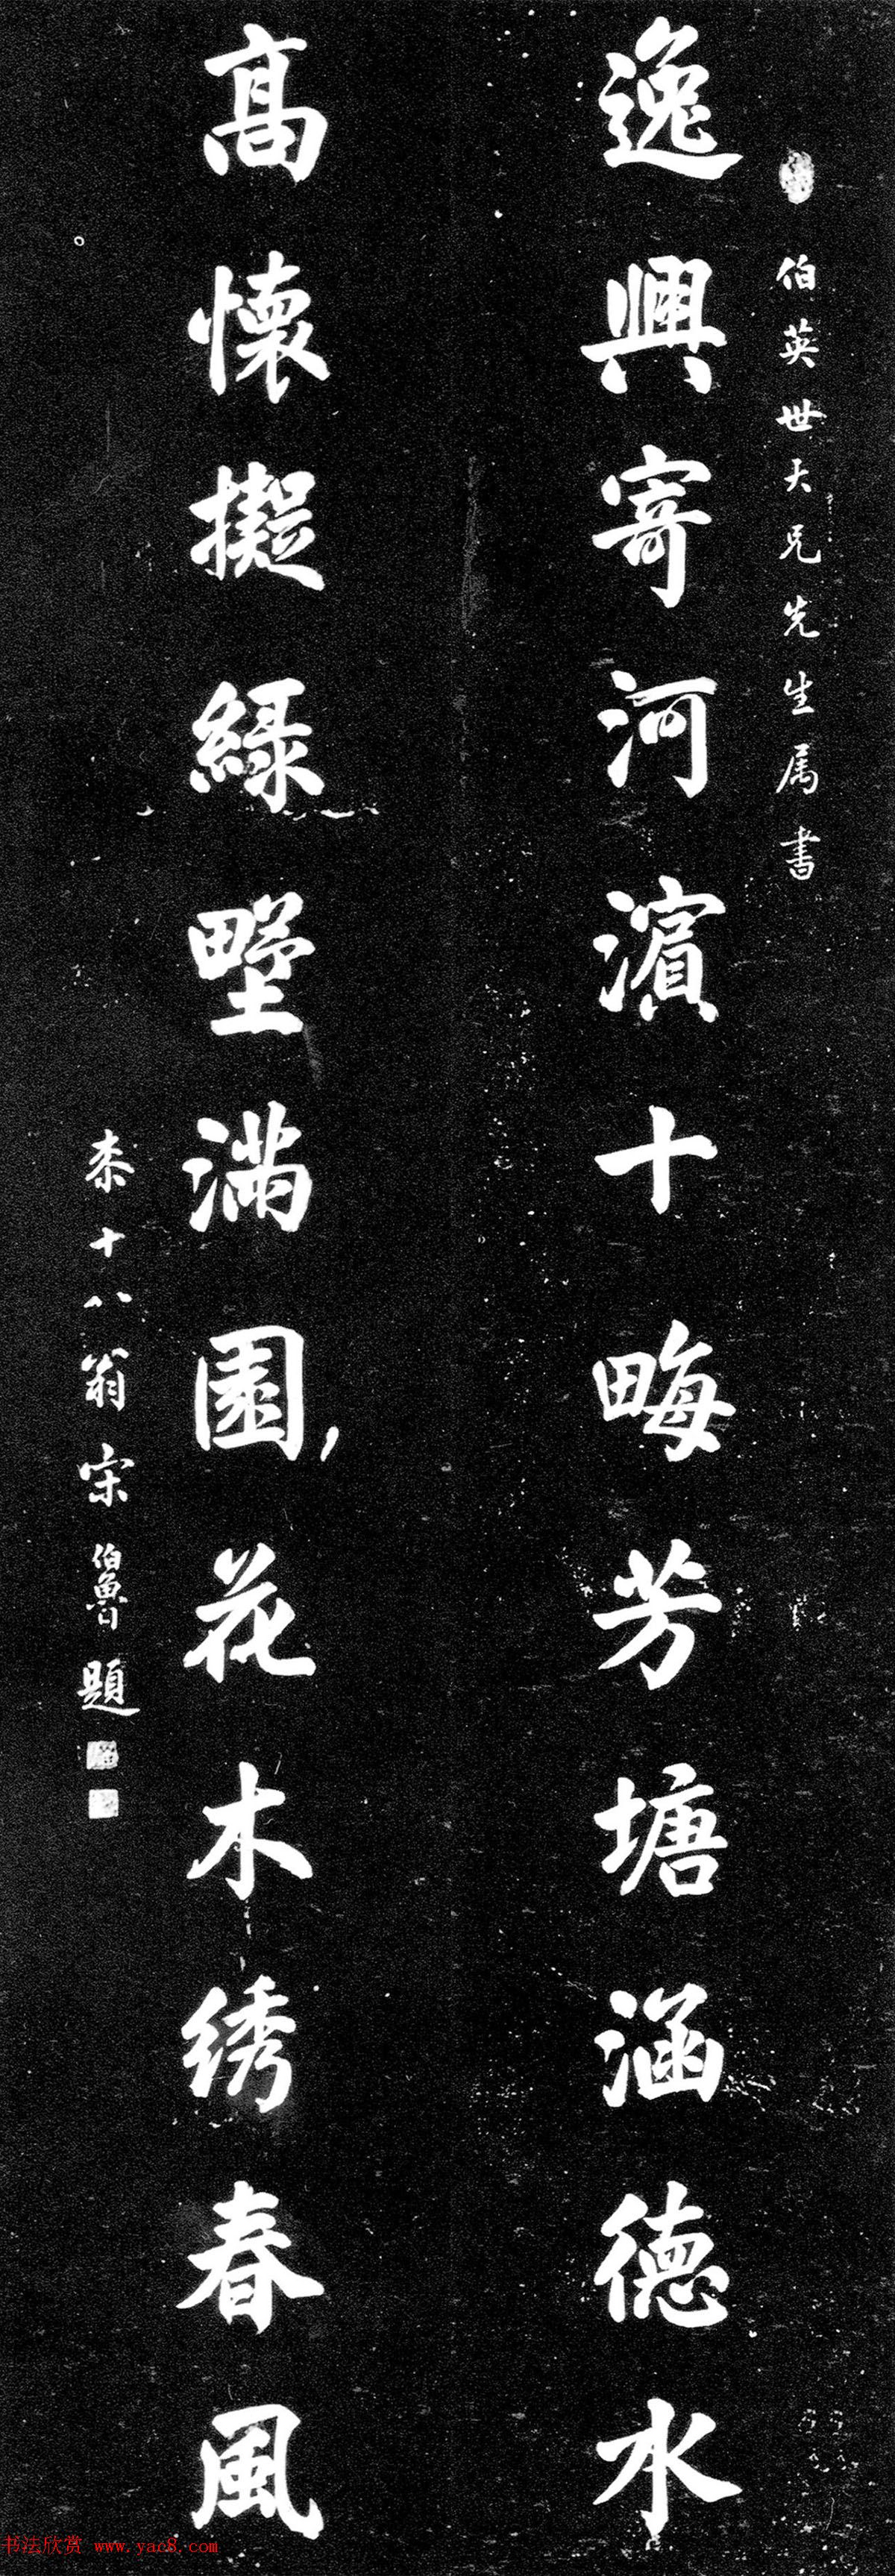 伯英世大兄先生属書
逸興寄河濱十畮芳塘涵德水
高懷擬緑墅滿園花木绣春風
桼十八翁宋伯魯題
书法欣赏 www.yac8.com